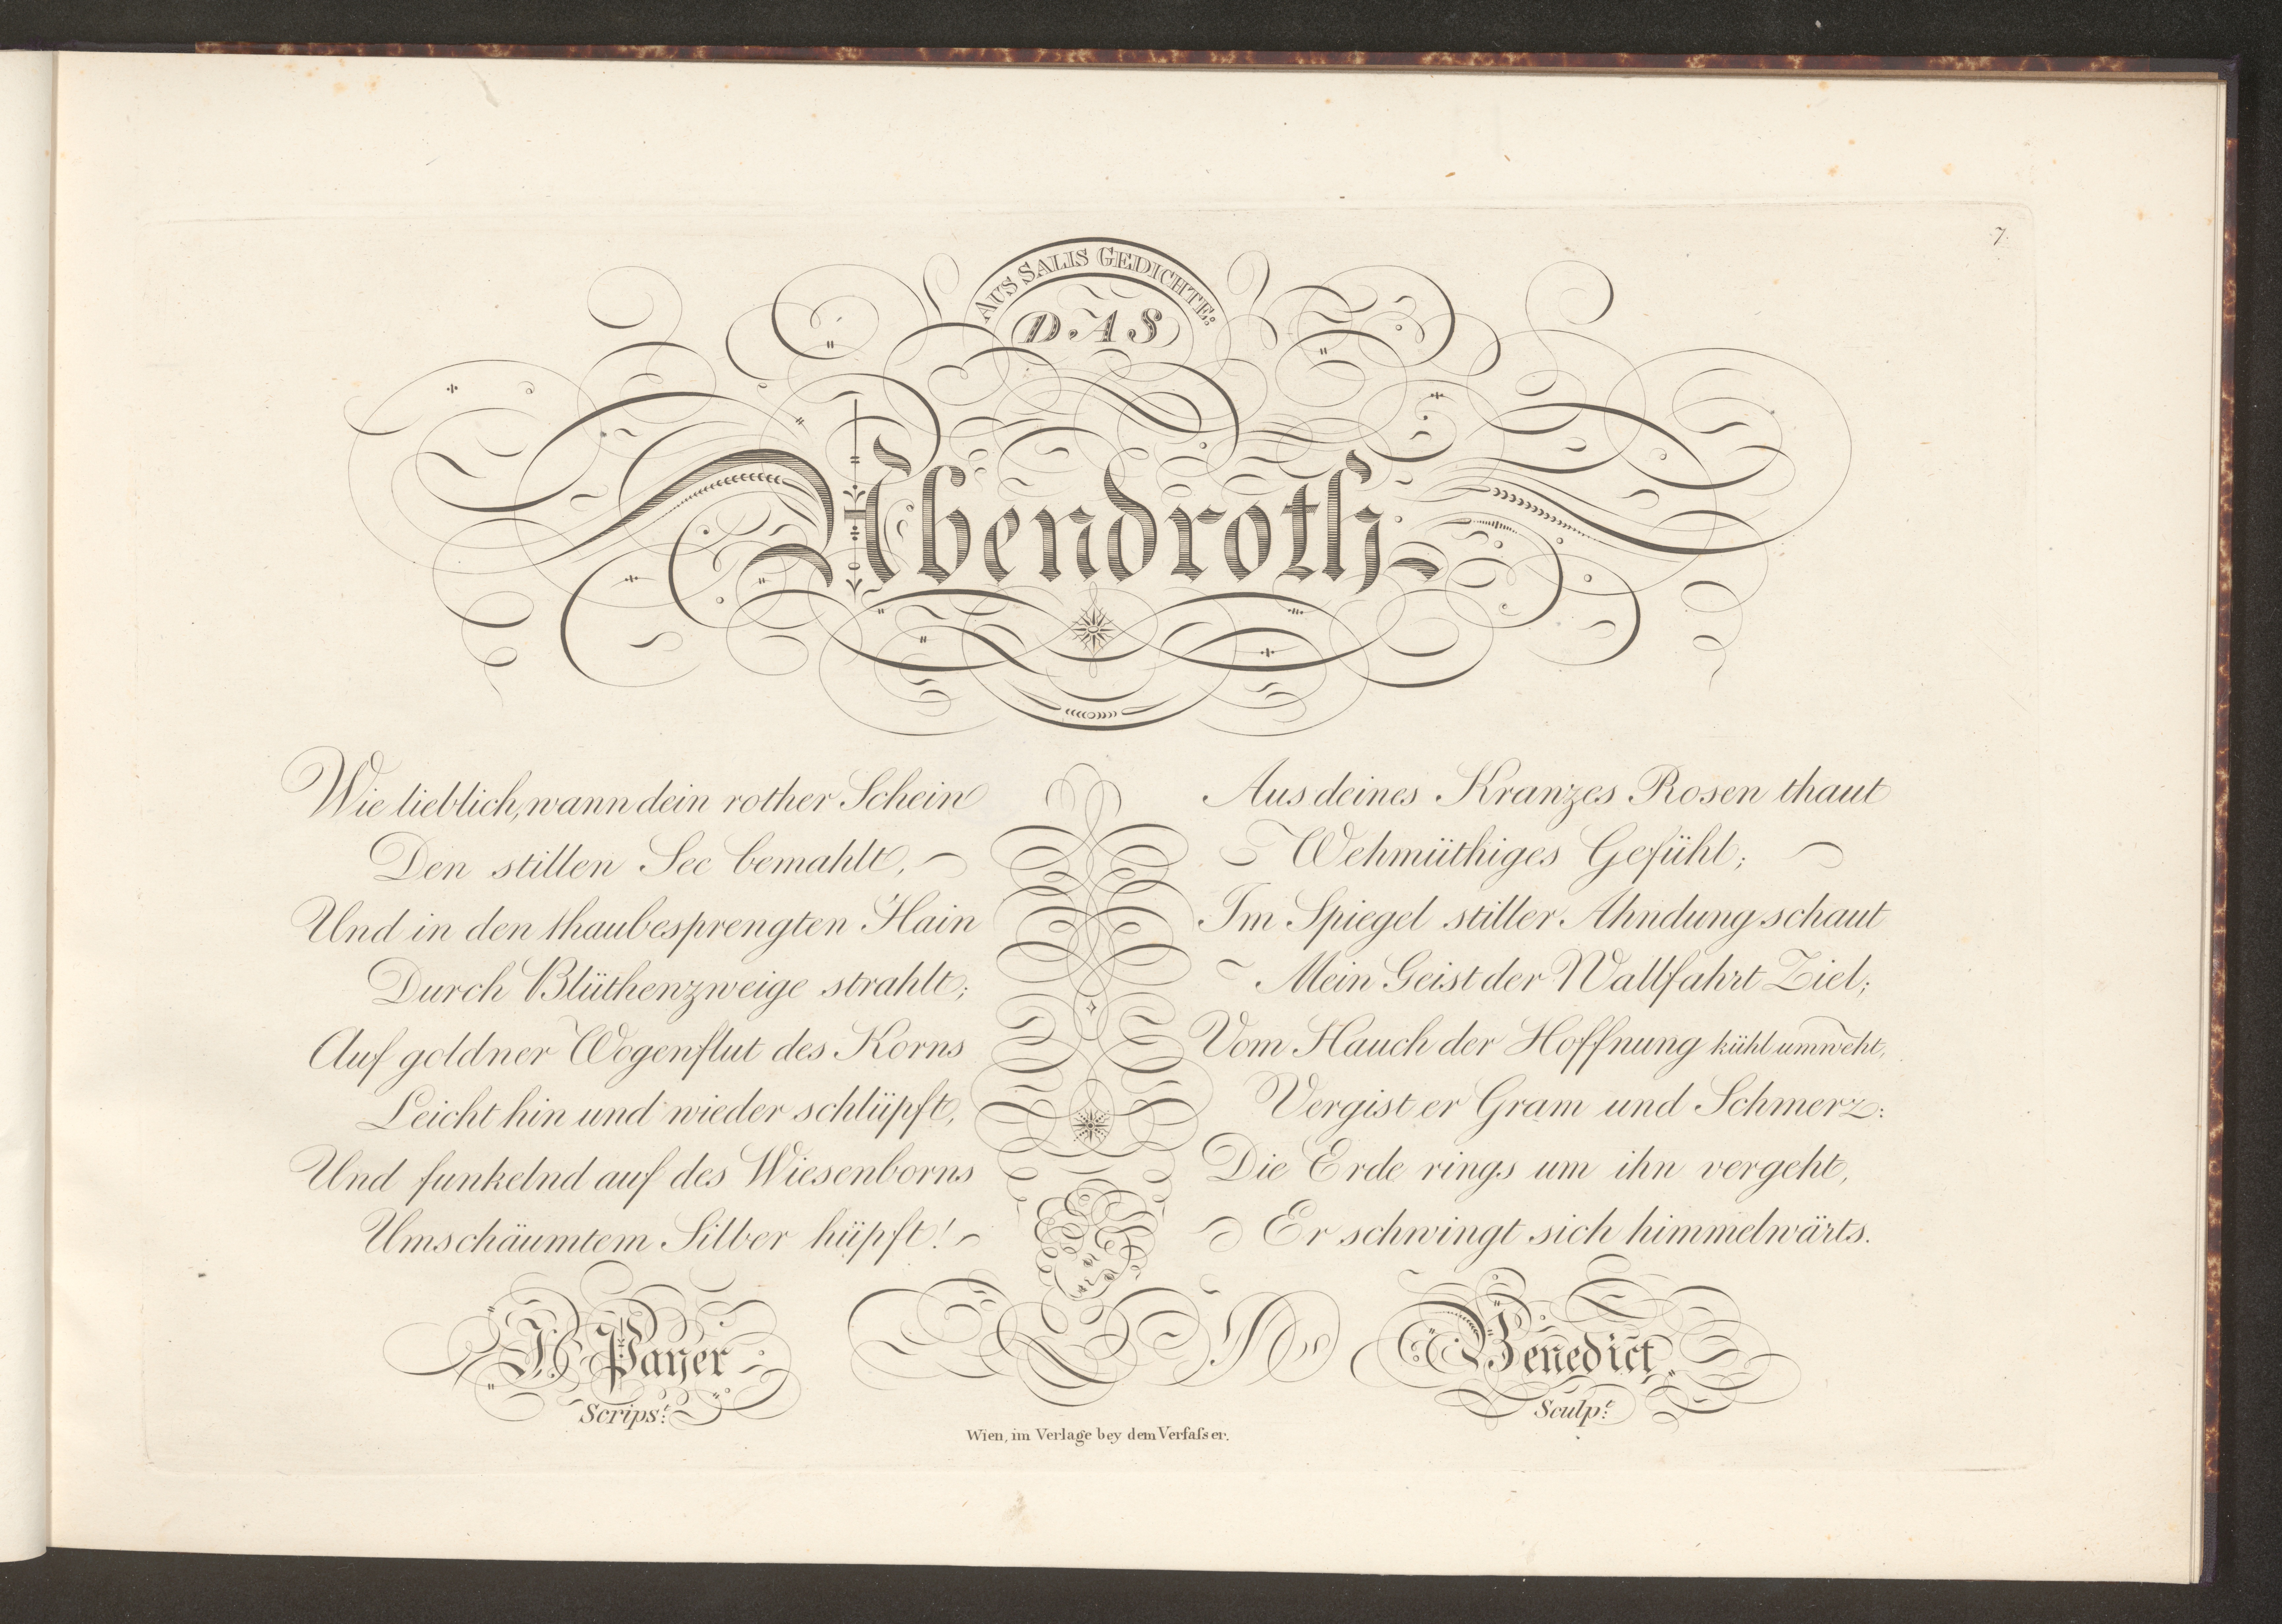 7.
AUS SALIS GEDICHTE:
DAS
Abendroth
Wie lieblich, wann dein rother Schein
Den stillen See bemahlt,
Und in den thaubesprengten Hain
Durch Blüthenzweige strahlt;
Auf goldner Wogenflut des Korns
Leicht hin und wieder schlüpft,
Und funkelnd auf des Wiesenborns
Umschäumtem Silber hüpft!
Aus deines Kranzes Rosen thaut
Wehmüthiges Gefühl;
Im Spiegel stiller Ahndung schaut
Mein Geist der Wallfahrt Ziel;
Vom Hauch der Hoffnung kühl umweht,
Vergist er Gram und Schmerz:
Die Erde rings um ihn vergeht,
Er schwingt sich himmelwärts.
Payer
Scrips.t
Benedict
Sculp.t
Wien, im Verlage bey dem Verfaſser.